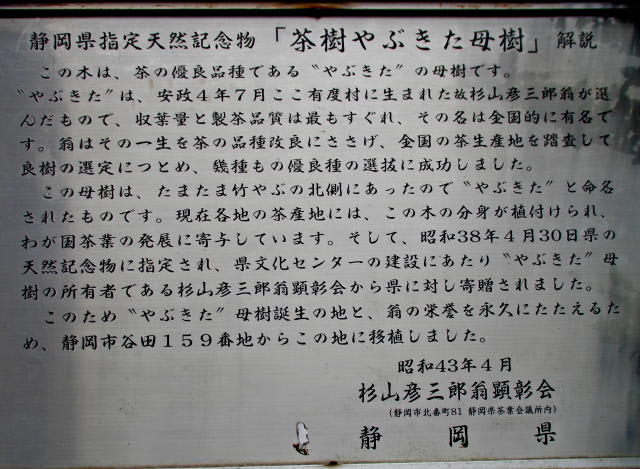 静岡県指定天然記念物「茶樹やぶきた母樹」解説
この木は、茶の優良品種である〝やぶきた〟の母樹です。
〝やぶきた〟は、安政4年7月ここ有度村に生まれた故杉山彦三郎翁が選
んだもので、収葉量と製茶品質は最もすぐれ、その名は全国的に有名で
す。翁はその一生を茶の品種改良にささげ、全国の茶生産地を踏査して
良樹の選定につとめ、幾種もの優良種の選抜に成功しました。
この母樹は、たまたま竹やぶの北側にあったので〝やぶきた〟と命名
されたものです。現在各地の茶産地には、この木の分身が植付けられ、
わが国茶業の発展に寄与しています。そして、昭和38年4月30日県の
天然記念物に指定され、県文化センターの建設にあたり〝やぶきた〟母
樹の所有者である杉山彦三郎翁顕彰会から県に対し寄贈されました。
このため〝やぶきた〟母樹誕生の地と、翁の栄誉を永久にたたえるた
め、静岡市谷田159番地からこの地に移植しました。
昭和43年4月
杉山彦三郎翁顕彰会
(静岡市北番町81 静岡県茶業会議所内)
静岡県